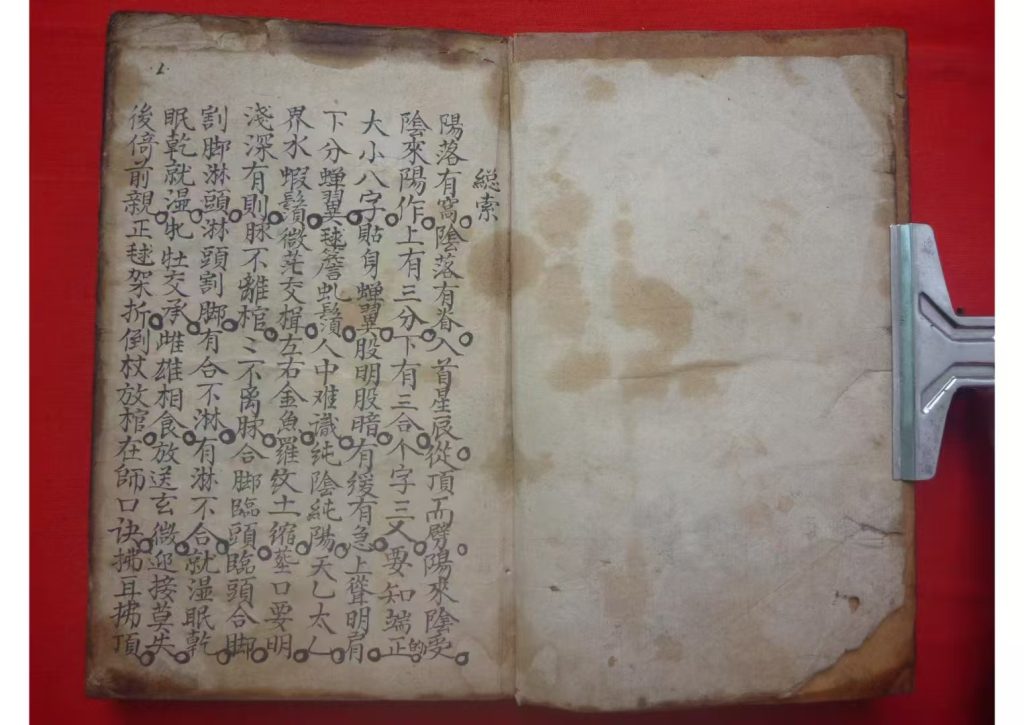 総索
陽落有窩陰落有脊入首星辰從頂而劈陽來陰受
陰來陽作上有三分下有三合个字三叉要知端正的
大小八字貼身蟬翼股明股暗有缓有急上聳明肩
下分蟬翼毬簷虬鬚人中难識纯陰純陽天乙太乙
界水蝦鬚微茫交揖左右金魚羅纹土缩葬口要明
淺深有則脉不離棺〻不离脉合脚臨頭臨頭合脚
割脚淋頭淋頭割脚有合不淋有淋不合就湿眠乾
眠乾就湿牝牡交承雌雄相食放送玄微迎接莫失
後倚前親正毬架折倒杖放棺在師口诀拂耳拂頂